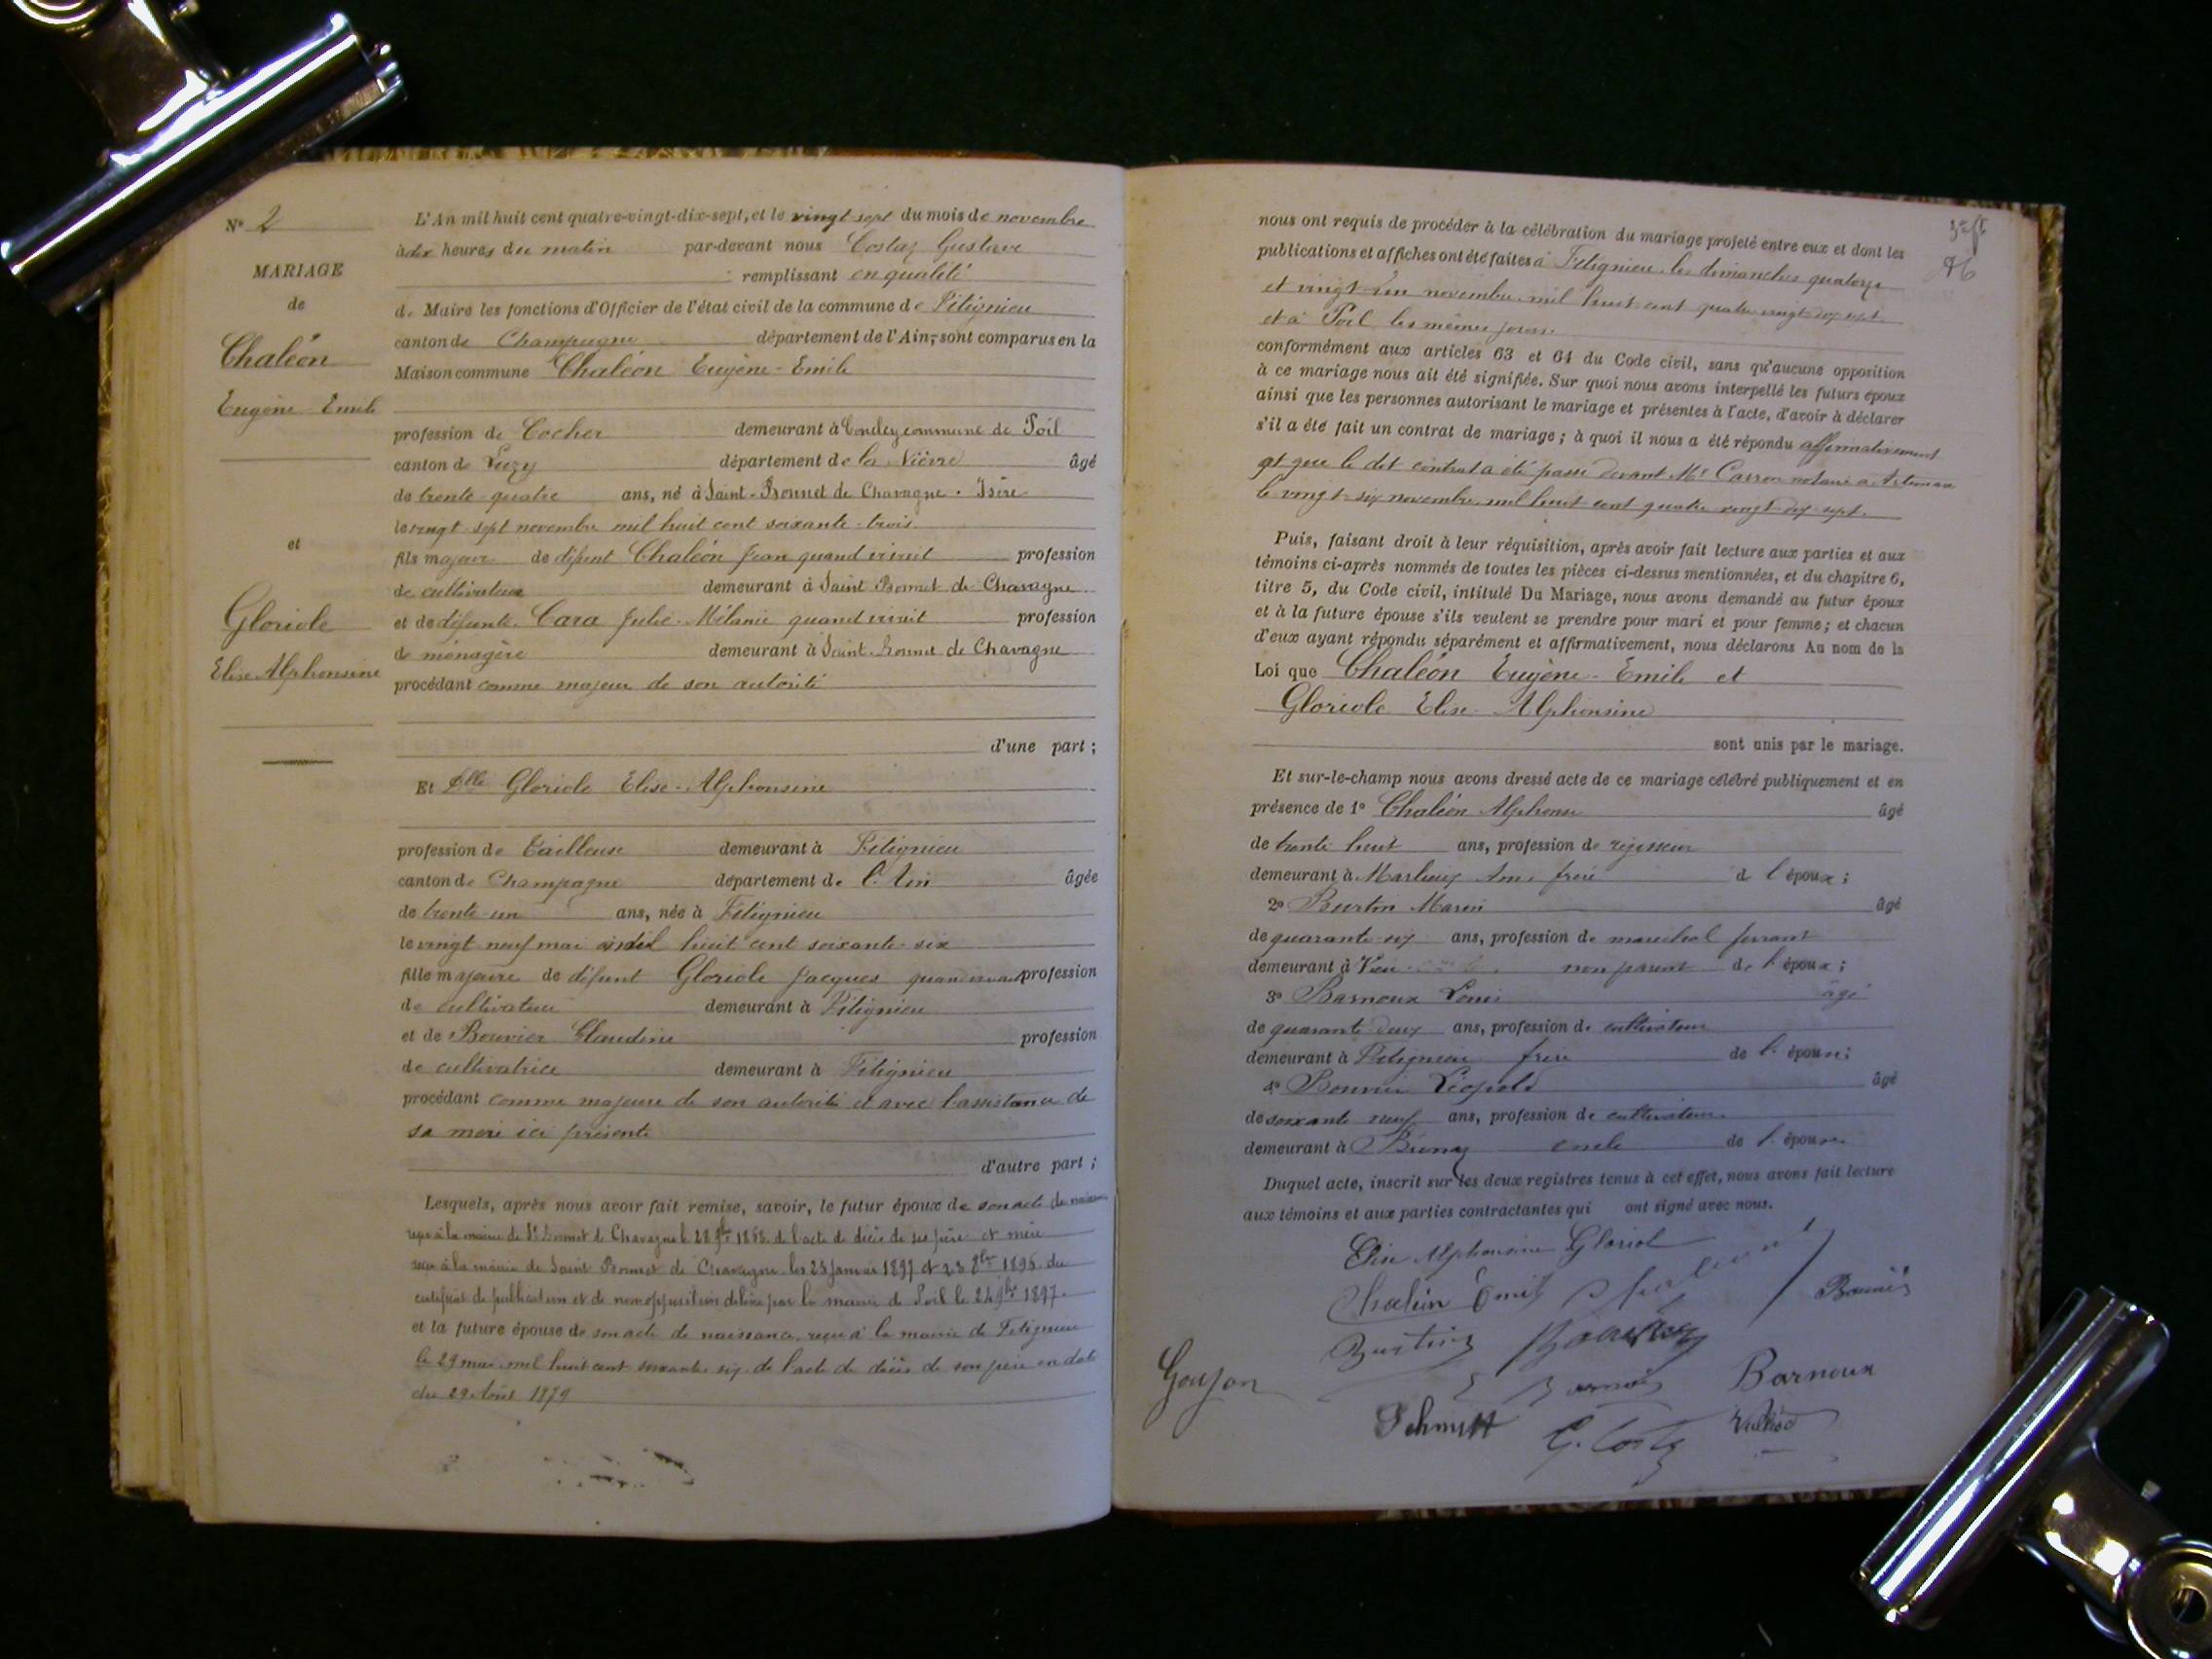 N° 2
MARIAGE
de
Chaléon
Eugène Emile
et
Gloriole
Elise Alphonsine
L'An mil huit cent quatre-vingt-dix-sept, et le vingt sept du mois de novembre
à dix heures du matin par-devant nous Costaz Gustave
remplissant en qualité
de Maire les fonctions d'Officier de l'état civil de la commune de Fitignieu
canton de Champagne département de l'Ain, sont comparus en la
Maison commune Chaléon Eugène-Emile
profession de Cocher demeurant à commune de Poil
canton de Luzy département de la Nièvre âgé
de trente quatre ans, né à Saint-Bonnet de Chavagne. Isère
le vingt sept novembre mil huit cent soixante-trois.
fils majeur de défunt Chaléon Jean quand vivait profession
de cultivateur demeurant à Saint Bonnet de Chavagne
et de défunte Cara Julie-Mélanie quand vivait profession
de ménagère demeurant à Saint-Bonnet de Chavagne
procédant comme majeur de son autorité
d'une part ;
Et Elle Gloriole Elise-Alphonsine
profession de Tailleuse demeurant à Fitignieu
canton de Champagne département de l'Ain âgée
de trente-un ans, née à Fitignieu
le vingt neuf mai mil huit cent soixante-six
fille majeure de défunt Gloriole Jacques quand vivait profession
de cultivateur demeurant à Fitignieu
et de Bouvier Claudine profession
de cultivatrice demeurant à Fitignieu
procédant comme majeure de son autorité et avec l'assistance de
sa mère ici présente
d'autre part ;
Lesquels, après nous avoir fait remise, savoir, le futur époux de son acte de naissance
reçu à la mairie de St Bonnet de Chavagne le 28 9bre 1863. de l'acte de décès de ses père et mère
reçu à la mairie de Saint Bonnet de Chavagne les 25 janvier 1897 et 23 8bre 1896. du
certificat de publication et de non opposition délivré par la mairie de Poil le 24 9bre 1897.
et la future épouse de son acte de naissance reçu à la mairie de Fitignieu
le 29 mai mil huit cent soixante six. de l'acte de décès de son père en date
du 29 Août 1879
nous ont requis de procéder à la célébration du mariage projeté entre eux et dont les
publications et affiches ont été faites à Fitignieu les dimanches quatorze
et vingt-un novembre mil huit cent quatre vingt dix sept
et à Poil les mêmes jours.
conformément aux articles 63 et 64 du Code civil, sans qu'aucune opposition
à ce mariage nous ait été signifiée. Sur quoi nous avons interpellé les futurs époux
ainsi que les personnes autorisant le mariage et présentes à l'acte, d'avoir à déclarer
s'il a été fait un contrat de mariage ; à quoi il nous a été répondu affirmativement
et que le dit contrat a été passé devant Me Carron notaire à Artemare
le vingt-six novembre mil huit cent quatre vingt dix sept.
Puis, faisant droit à leur réquisition, après avoir fait lecture aux parties et aux
témoins ci-après nommés de toutes les pièces ci-dessus mentionnées, et du chapitre 6,
titre 5, du Code civil, intitulé Du Mariage, nous avons demandé au futur époux
et à la future épouse s'ils veulent se prendre pour mari et pour femme ; et chacun
d'eux ayant répondu séparément et affirmativement, nous déclarons Au nom de la
Loi que Chaléon Eugène-Emile et
Gloriole Elise-Alphonsine
sont unis par le mariage.
Et sur-le-champ nous avons dressé acte de ce mariage célébré publiquement et en
présence de 1° Chaléon Alphonse âgé
de trente huit ans, profession de régisseur
demeurant à frère de l'époux ;
2° Burtin Marin âgé
de quarante-six ans, profession de maréchal ferrant
demeurant à Vieu non parent de l'époux ;
3° Barnoux Louis âgé
de quarante deux ans, profession de cultivateur
demeurant à Fitignieu frère de l'épouse ;
4° Bouvier Léopold âgé
de soixante neuf ans, profession de cultivateur
demeurant à oncle de l'épouse
Duquel acte, inscrit sur les deux registres tenus à cet effet, nous avons fait lecture
aux témoins et aux parties contractantes qui ont signé avec nous.
Elise Alphonsine Gloriol
Chaléon Emile
Burtin
Goujon
Barnoux
Schmitt G. Costaz